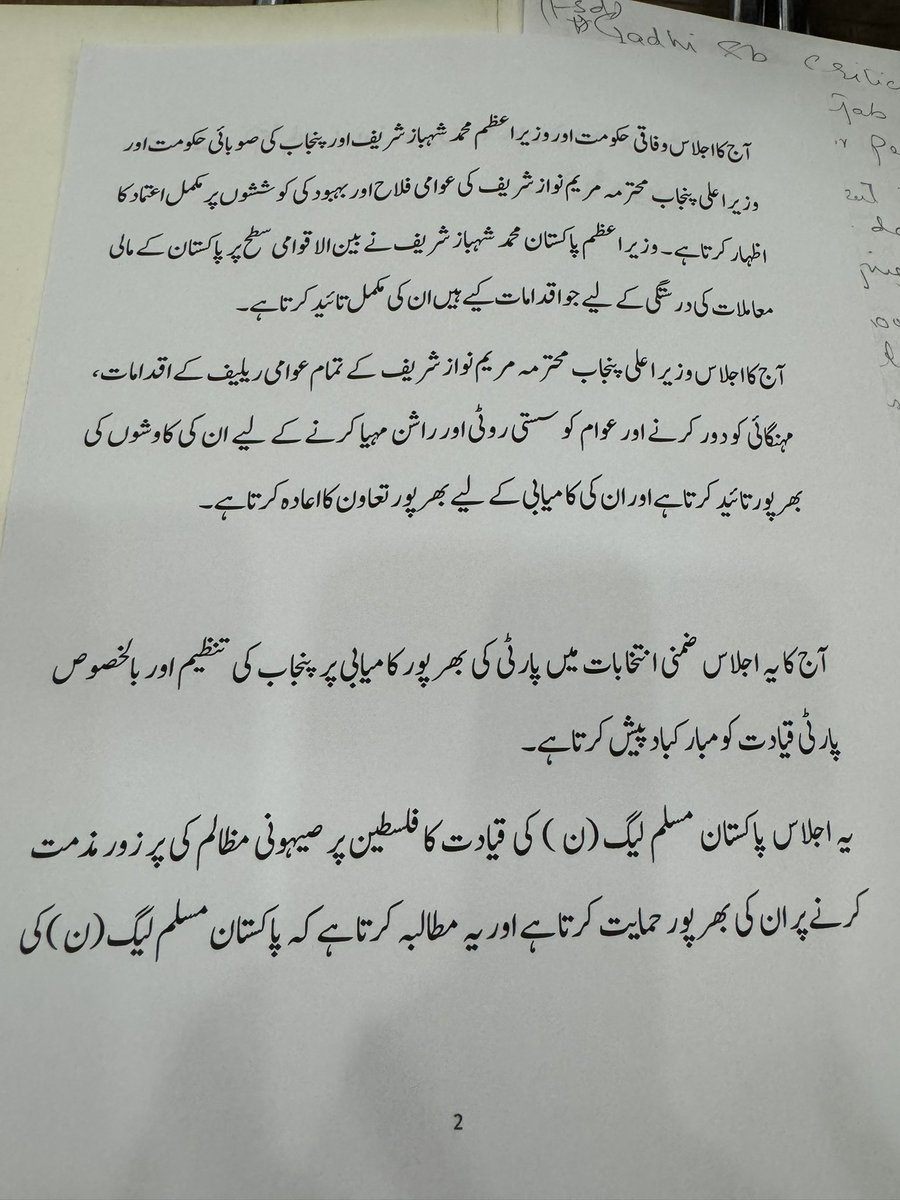 (Fsd)
Gadhi Sb Critic
Jab
آج کا اجلاس وفاقی حکومت اور وزیر اعظم محمد شہباز شریف اور پنجاب کی صوبائی حکومت اور
وزیر اعلی پنجاب محترمہ مریم نواز شریف کی عوامی فلاح اور بہبود کی کوششوں پر مکمل اعتماد کا
اظہار کرتا ہے۔ وزیر اعظم پاکستان محمد شہباز شریف نے بین الاقوامی سطح پر پاکستان کے مالی
معاملات کی درستگی کے لیے جو اقدامات کیے ہیں ان کی مکمل تائید کرتا ہے۔
آج کا اجلاس وزیر اعلی پنجاب محترمہ مریم نواز شریف کے تمام عوامی ریلیف کے اقدامات،
مہنگائی کو دور کرنے اور عوام کو سستی روٹی اور راشن مہیا کرنے کے لیے ان کی کاوشوں کی
بھر پور تائید کرتا ہے اور ان کی کامیابی کے لیے بھر پور تعاون کا اعادہ کرتا ہے۔
آج کا یہ اجلاس ضمنی انتخابات میں پارٹی کی بھر پور کامیابی پر پنجاب کی تنظیم اور بالخصوص
پارٹی قیادت کو مبارکباد پیش کرتا ہے۔
یہ اجلاس پاکستان مسلم لیگ (ن) کی قیادت کا فلسطین پر صیہونی مظالم کی پر زور مذمت
کرنے پر ان کی بھر پور حمایت کرتا ہے اور یہ مطالبہ کرتا ہے کہ پاکستان مسلم لیگ (ن) کی
2